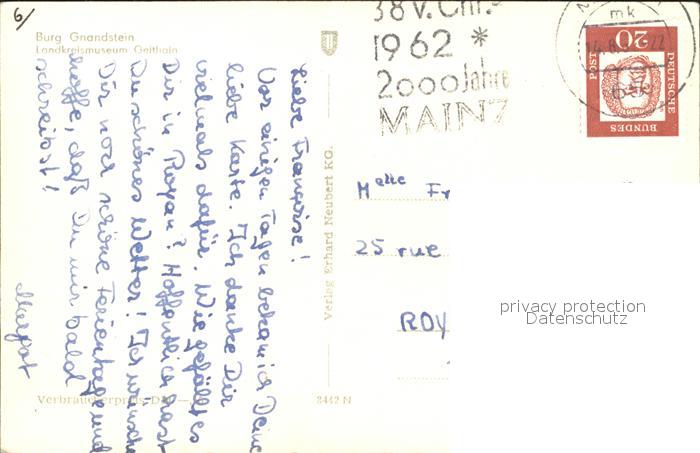 6/
Burg Gnandstein
Landkreismuseum Geithain
38 v. Chr.-
1962 *
2000 Jahre
MAINZ
mk
20
POST
DEUTSCHE
BUNDES
Liebe Françoise!
Vor einigen Tagen bekam ich Deine
liebe Karte. Ich danke Dir
vielmals dafür. Wie gefällt es
Dir in Royan? Hoffentlich hast
Du schönes Wetter! Ich wünsche
Dir noch schöne Ferientage und
hoffe, daß Du mir bald
schreibst!
Margot
Verlag Erhard Neubert KG.
Melle Fr
25 rue
ROY
privacy protection
Datenschutz
Verbraucherpreis DM
3442 N